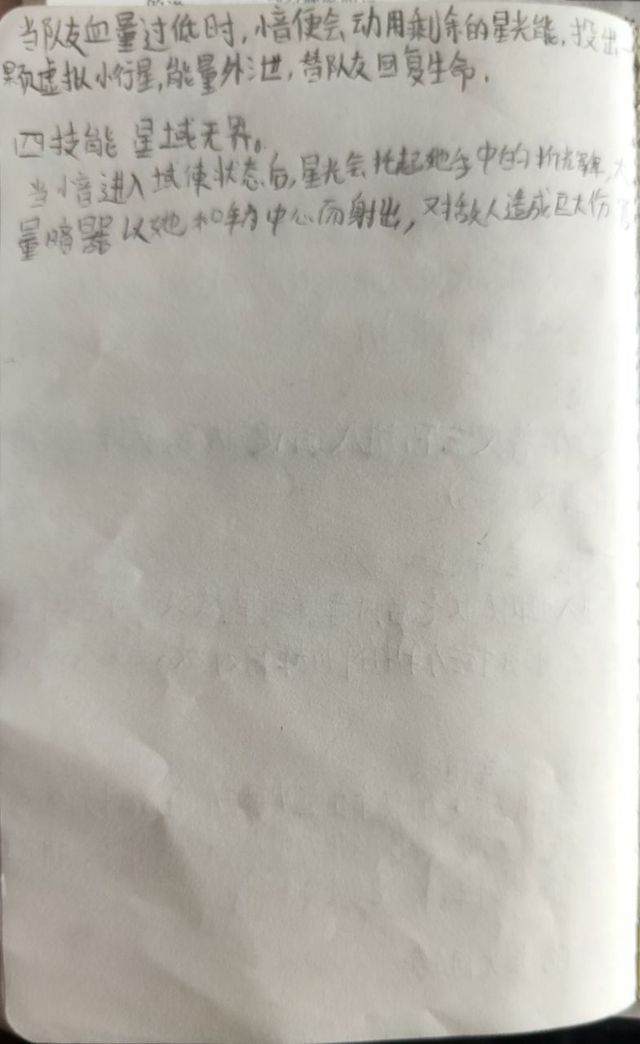 当队友血量过低时，小音便会动用剩余的星光能，投出一
颗虚拟小行星，能量外泄，替队友回复生命．
四技能 星域无界。
当小音进入域使状态后，星光会托起她手中的折光伞，大
量暗器以她和伞为中心而射出，对敌人造成巨大伤害